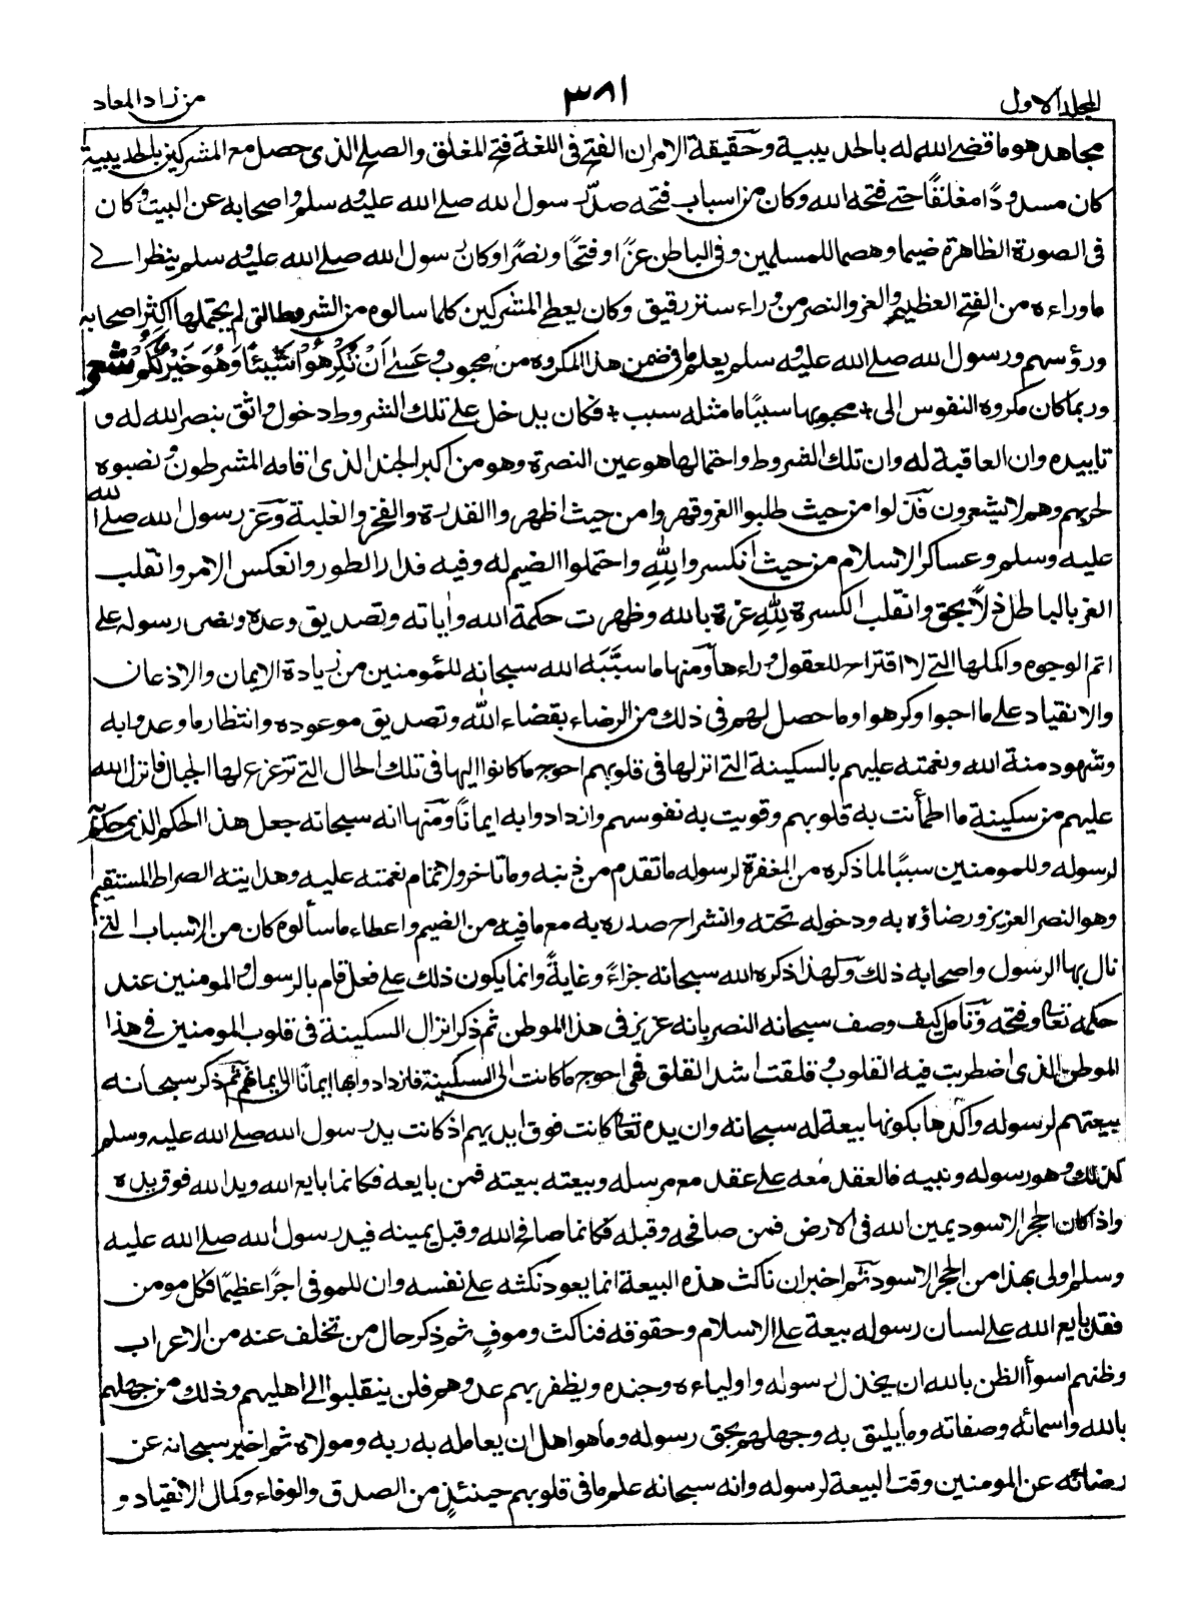 المجلد الاول
٣٨١
من زاد المعاد
مجاهد هو ما قضى الله له بالحديبية وحقيقة الامر ان الفتح فى اللغة فتح المغلق والصلح الذى حصل مع المشركين بالحديبية
كان مسدودًا مغلقًا حتى فتحه الله وكان من اسباب فتحه صدّ رسول الله صلى الله عليه وسلم واصحابه عن البيت وكان
فى الصورة الظاهرة ضيما وهضما للمسلمين وفى الباطن عزًا وفتحًا ونصرًا وكان رسول الله صلى الله عليه وسلم ينظر الى
ما وراءه من الفتح العظيم والعز والنصر من وراء ستر رقيق وكان يعطى المشركين كلما سالوه من الشروط التى لم يحتملها اكثر اصحابه
ورؤسهم ورسول الله صلى الله عليه وسلم يعلم ما فى ضمن هذا المكروه من محبوب وعَسٰى اَنْ تَكْرَهُوْا شَيْئًا وَّهُوَ خَيْرٌ لَّكُمْ شعر
وربما كان مكروه النفوس الى + محبوبها سببًا ما مثله سبب + فكان يدخل على تلك الشروط دخول واثق بنصر الله له و
تاييده وان العاقبة له وان تلك الشروط واحتمالها هو عين النصرة وهو من اكبر الجند الذى اقامه المشرطون ونصبوه
لحربهم وهم لا يشعرون فذلوا من حيث طلبوا العز وقهروا من حيث اظهروا القدرة والفخر والغلبة وعز رسول الله صلى الله
عليه وسلم وعساكر الاسلام من حيث انكسروا لِلّٰهِ واحتملوا الضيم له وفيه فدار الطور وانعكس الامر وانقلب
العز بالباطل ذلًا بحق وانقلب الكسرة لِلّٰهِ عزة بالله وظهرت حكمة الله واٰياته وتصديق وعده ونصر رسوله على
اتم الوجوه واكملها التى لا اقتراح للعقول وراءها ومنها ما سبَّبَه الله سبحانه للمؤمنين من زيادة الايمان والاذعان
والانقياد على ما احبوا وكرهوا وما حصل لهم فى ذلك من الرضاء بقضاء الله وتصديق موعوده وانتظار ما وعدوا به
وشهود منة الله ونعمته عليهم بالسكينة التى انزلها فى قلوبهم احوج ما كانوا اليها فى تلك الحال التى تزعزع لها الجبال فانزل الله
عليهم من سكينة ما اطمأنت به قلوبهم وقويت به نفوسهم وازدادوا به ايمانًا ومنها انه سبحانه جعل هذا الحكم الذى حكم
لرسوله وللمومنين سببًا لما ذكره من المغفرة لرسوله ما تقدم من ذنبه وما تاخر ولاتمام نعمته عليه وهدايته الصراط المستقيم
وهو النصر العزيز ورضاؤه به ودخوله تحته وانشراح صدره به مع ما فيه من الضيم واعطاء ما سألوه كان من الاسباب التى
نال بها الرسول واصحابه ذلك ولهذا ذكره الله سبحانه جزاءً وغايةً وانما يكون ذلك على فعل قام بالرسول والمومنين عند
حكمه تعالى وفتحه وتأمل كيف وصف سبحانه النصر بانه عزيز فى هذا الموطن ثم ذكر انزال السكينة فى قلوب المومنين فى هذا
الموطن الذى اضطربت فيه القلوب وقلقت اشد القلق فهى احوج ما كانت الى السكينة فازدادوا بها ايمانًا الى ايمانهم ثم ذكر سبحانه
بيعتهم لرسوله واكّدها بكونها بيعة له سبحانه وان يده تعالى كانت فوق ايديهم اذ كانت يد رسول الله صلى الله عليه وسلم
كذلك وهو رسوله ونبيه فالعقد معه على عقد مع مرسله وبيعته بيعته فمن بايعه فكانما بايع الله ويد الله فوق يده
واذا كان الحجر الاسود يمين الله فى الارض فمن صافحه وقبله فكانما صافح الله وقبل يمينه فيد رسول الله صلى الله عليه
وسلم اولى بهذا من الحجر الاسود ثم اخبر ان ناكث هذه البيعة انما يعود نكثه على نفسه وان للموفى اجرًا عظيمًا فكل مومن
فقد بايع الله على لسان رسوله بيعة على الاسلام وحقوقه فناكث وموفٍ ثم ذكر حال من تخلف عنه من الاعراب
وظنهم اسوأ الظن بالله ان يخذل رسوله واولياءه وجنده ويظفر بهم عدوهم فلن ينقلبوا الى اهليهم وذلك من جهلهم
بالله واسمائه وصفاته وما يليق به وجهلهم بحق رسوله وما هو اهل ان يعامله به ربه ومولاه ثم اخبر سبحانه عن
رضائه عن المومنين وقت البيعة لرسوله وانه سبحانه علم ما فى قلوبهم حينئذٍ من الصدق والوفاء وكمال الانقياد و